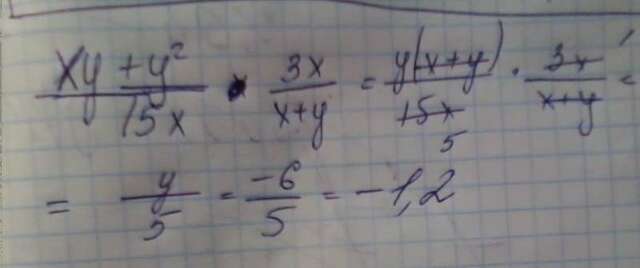 (xy + y²)/(15x) · (3x)/(x+y) = (y(x+y))/(15x) · (3x)/(x+y) =
5
= y/5 = -6/5 = -1,2